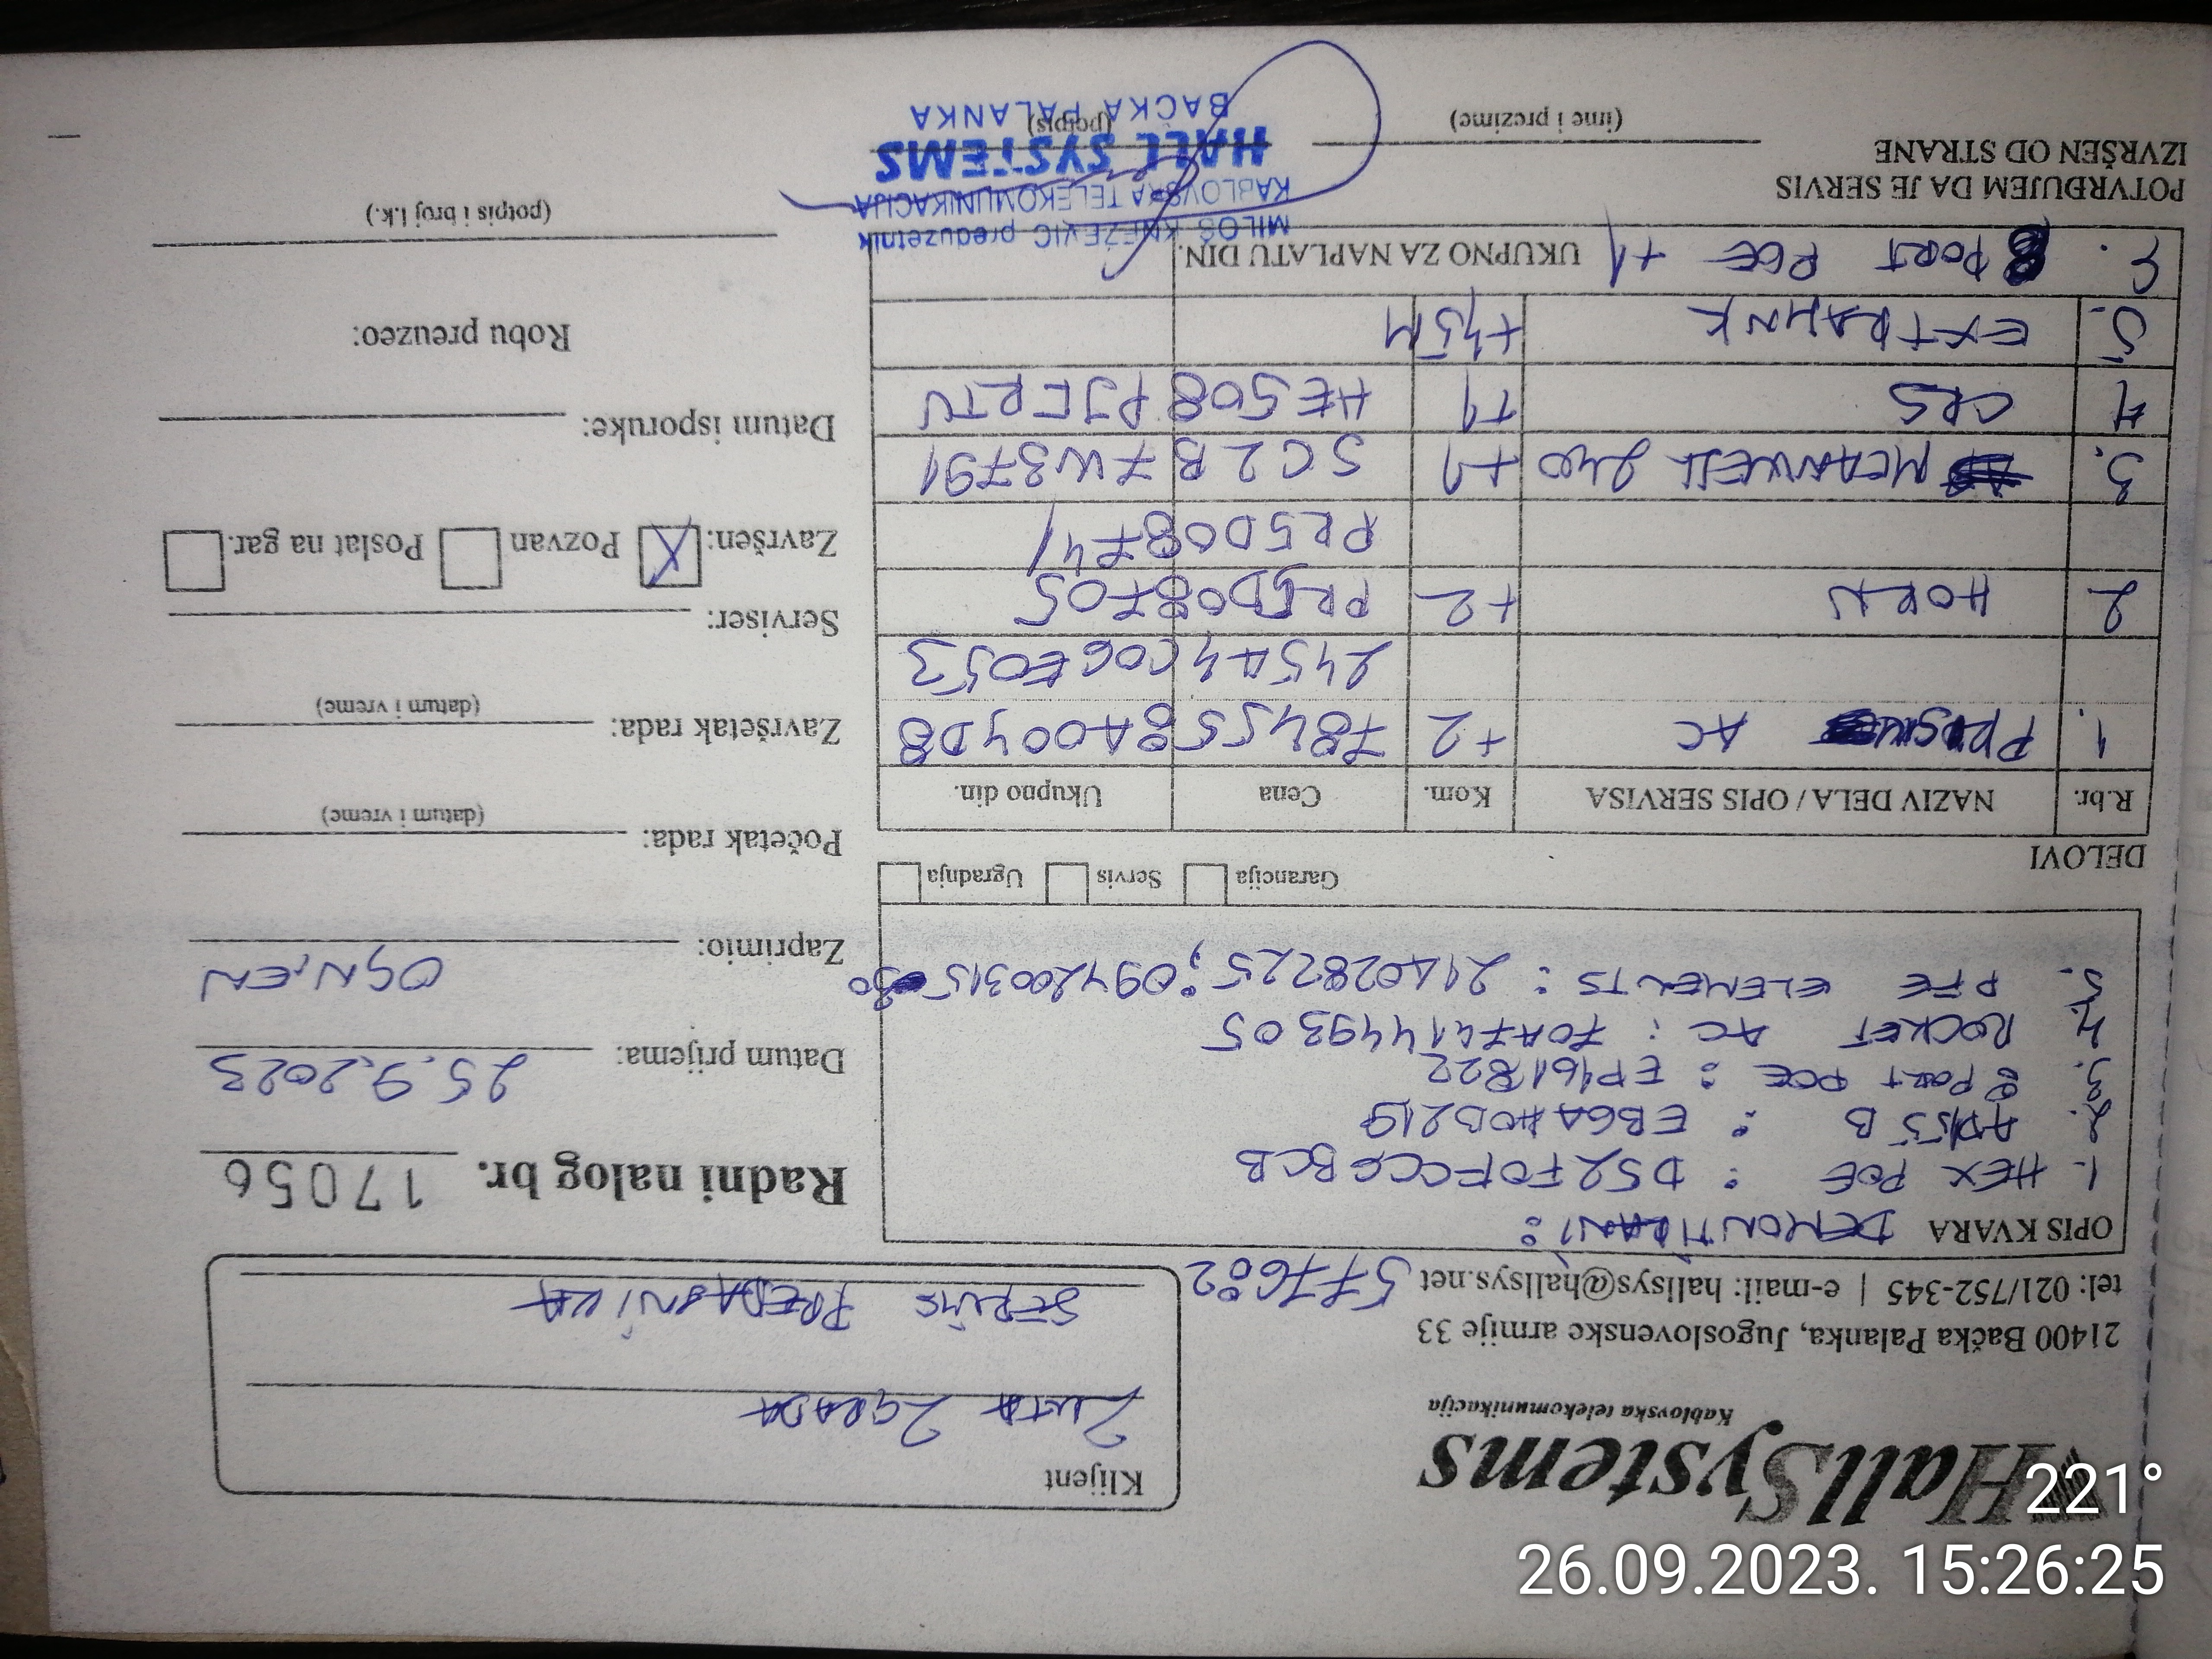 HallSystems
Kablovska telekomunikacija
21400 Bačka Palanka, Jugoslovenske armije 33
tel: 021/752-345 | e-mail: hallsys@hallsys.net 577682
Klijent
ŽUTA ZGRADA
SERVIS
Radni nalog br. 17056
Datum prijema: 25.9.2023
Zaprimio: OGNJEN
Početak rada:
(datum i vreme)
Završetak rada:
(datum i vreme)
Serviser:
Završen: X Pozvan Poslat na gar.
Datum isporuke:
Robu preuzeo:
(potpis i broj l.k.)
OPIS KVARA DEMONTIRANI:
1. HEX POE : D52F0FCCGBCB
2. : EB6A40B219
3. 8 PORT POE : EP161822
4. ROCKET AC : 70A741449305
5. PTE ELEMENTS : 2140282225;
Garancija Servis Ugradnja
DELOVI
R.br. NAZIV DELA / OPIS SERVISA Kom. Cena Ukupno din.
1. AC +2 784558A004D8
245A4C0GE053
2 HORN +2 PR5D08705
PR5D08741
3. MEANWELL 240 +1 SC2B7W3791
4 CRS +1 HE508PJERTV
5. +45M
PORT POE +1 UKUPNO ZA NAPLATU DIN.
POTVRĐUJEM DA JE SERVIS
IZVRŠEN OD STRANE
(ime i prezime)
(potpis)
MILOŠ KNEŽEVIĆ preduzetnik
KABLOVSKA TELEKOMUNIKACIJA
HALL SYSTEMS
BAČKA PALANKA
221°
26.09.2023. 15:26:25